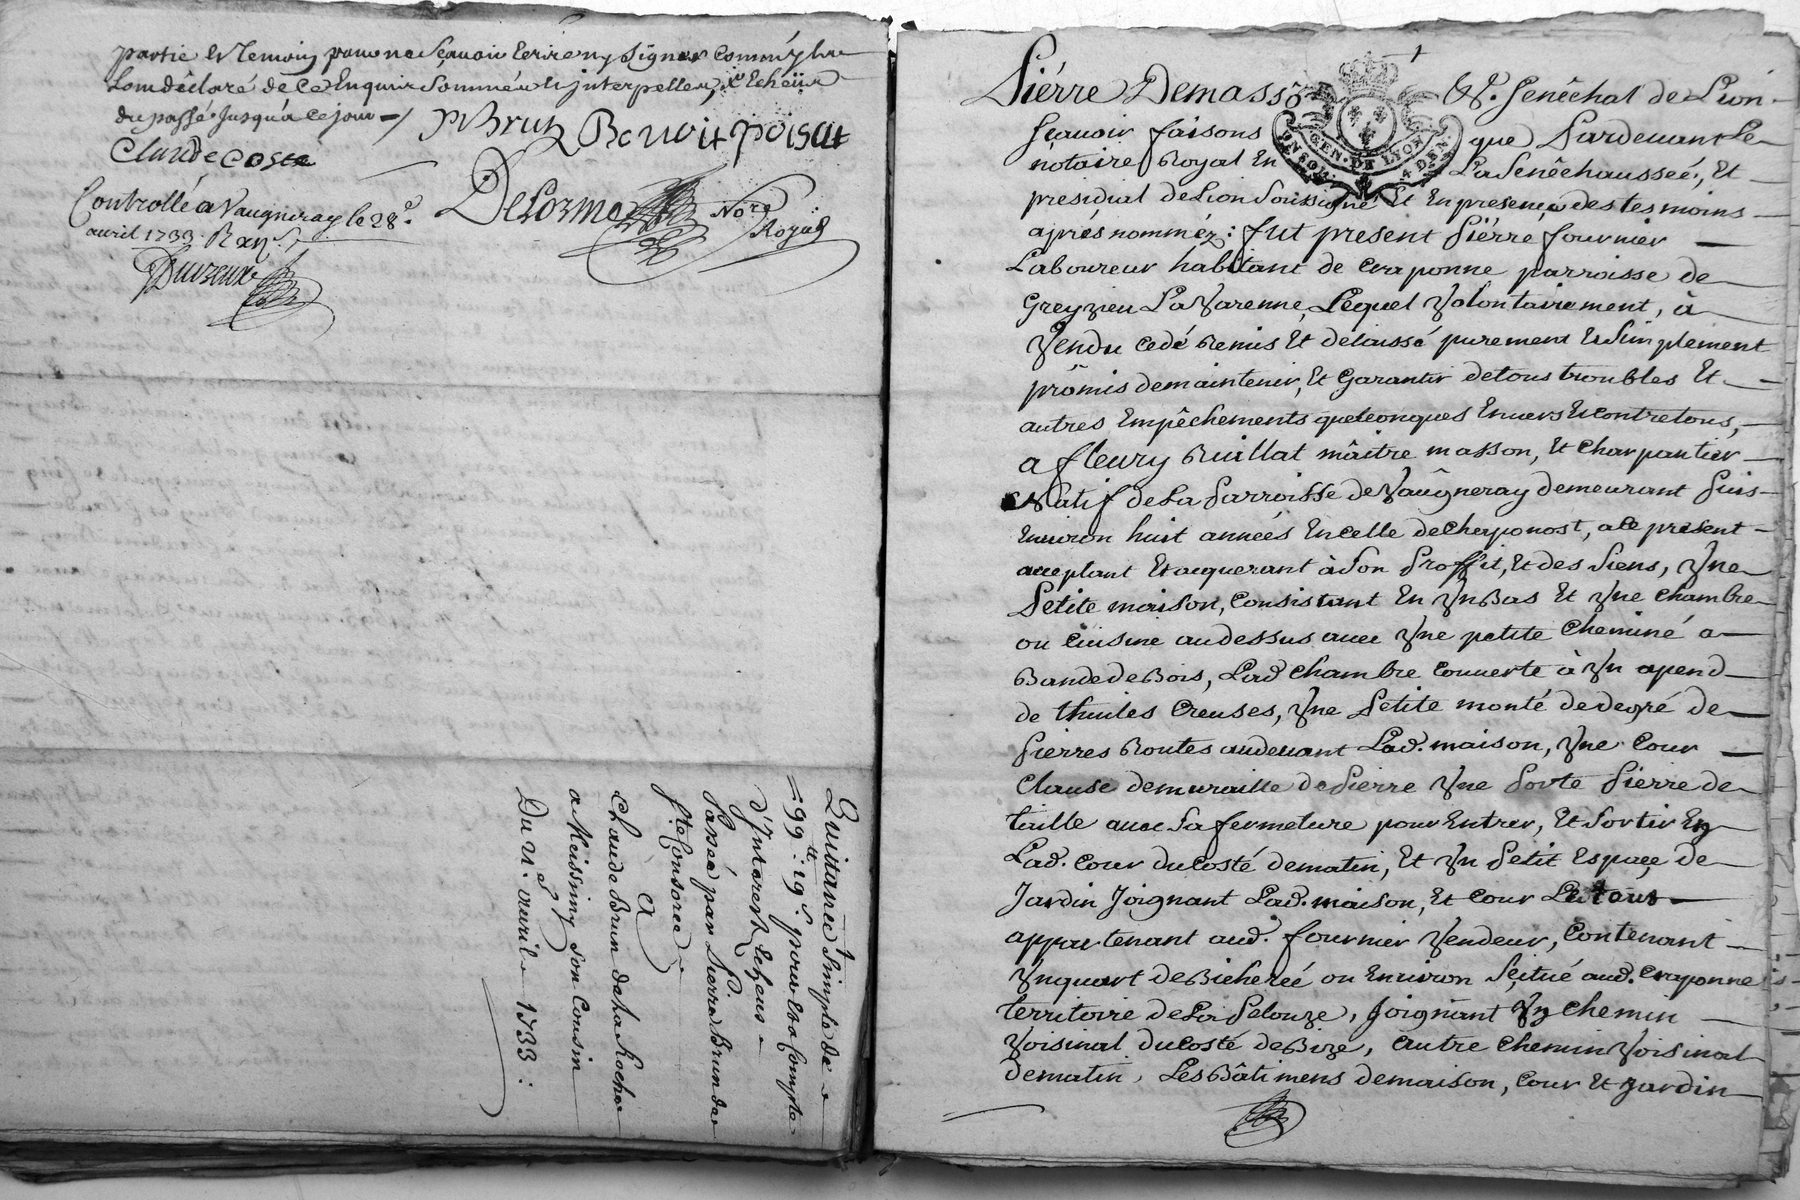 partie et temoin pour ne sçauoir Ecrire ny signer comme ils
l'ont déclaré de ce Enquis sommés et interpellés, Echeüe
du passé jusqu'a ce jour
P Brun Benoit poisat
Claude Coste
Delorme Nore Royal
Controllé a Vaugneray le 28e
auril 1733. R
Duvzeux
Quittance simple de
99tt: 19s. pour les compte
d'Interest Echeus
Passée par Pierre Brun de
Ste Consorce
A
Claude Brun de la Roche
a Meissimy son Cousin
Du 21e auril 1733:
Piérre Demasso &c. Senêchal de Lion
Scauoir faisons que Pardeuant Le
nòtaire Royal En La Senêchaussée, Et
presidial de Lion Soussigné Et En presence des tesmoins
aprés nommez: fut present Piérre fournier
Laboureur habitant de Craponne parroisse de
Greyzieu La Varenne, Lequel Volontairement, à
Vendu cedé Remis Et delaissé purement Et Simplement
prômis de maintenir, Et Garantir de tous troubles Et
autres Empêchements quelconques Enuers Et contre tous,
a fleury Ruillat mâitre masson, Et Charpantier
Natif de La Parroisse de Vaugneray demeurant Puis
Enuiron huit années En celle de Chaponost, a Ce present
acceptant Et acquerant à Son Proffit, Et des Siens, Vne
Petite maison, Consistant En Vn Bas Et Vne Chambre
ou Cuisine au dessus auec Vne petite Cheminé a
Bande de Bois, Lad. Chambre Couuerte à Vn apend
de thuiles Creuses, Vne Petite monté de degré de
Pierres Routes au deuant Lad. maison, Vne Cour
Clause de muraille de Pierre Vne Porte Piérre de
taille auec Sa fermeture pour Entrer, Et Sortir En
Lad. Cour du Costé de matin, Et Vn Petit Espace, de
Jardin Joignant Lad. maison, Et Cour Le tout
appartenant aud. fournier Vendeur, Contenant
Vn quart de Bicheréé ou Enuiron Scitué aud. Craponne
territoire de La Pelouze, Joignant Vn Chemin
Voisinal du Costé de Bize, Autre Chemin Voisinal
de matin, Les Bâtimens de maison, Cour Et Jardin
GEN. DE LYON